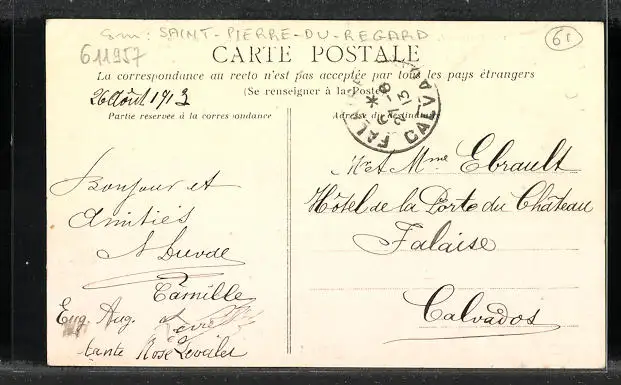 Sm: SAINT-PIERRE-DU-REGARD
611957
61
CARTE POSTALE
La correspondance au recto n'est pas acceptée par tous les pays étrangers
(Se renseigner à la Poste)
26 Août 1913
Partie réservée à la correspondance
Adresse du destinataire
FALAISE CALVADOS
Bonjour et
Amitiés
Camille
Eug. Aug.
tante Rose
Mr et Mme Ebrault
Hôtel de la Porte du Château
Falaise
Calvados